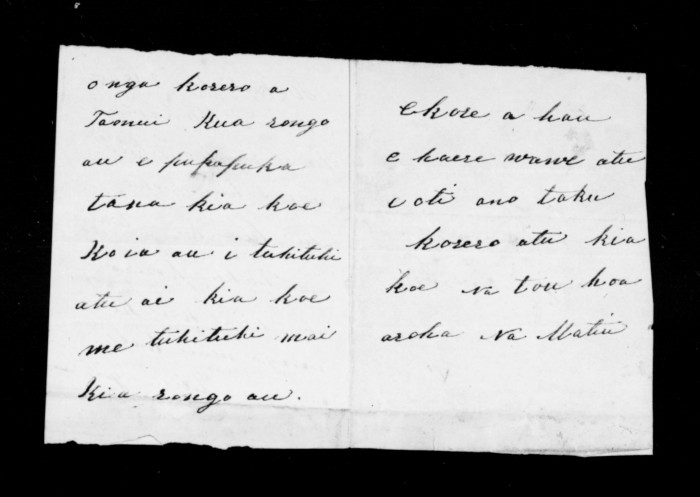 onga korero a
Taonui Kua rongo
au e pukapuka
tana kia koe
Koia au i tuhituhi
atu ai kia koe
me tuhituhi mai
Kia rongo au.
Ekore a hau
e haere wawe atu
i oti ano taku
korero atu kia
koe Na tou hoa
aroha Na Matiu